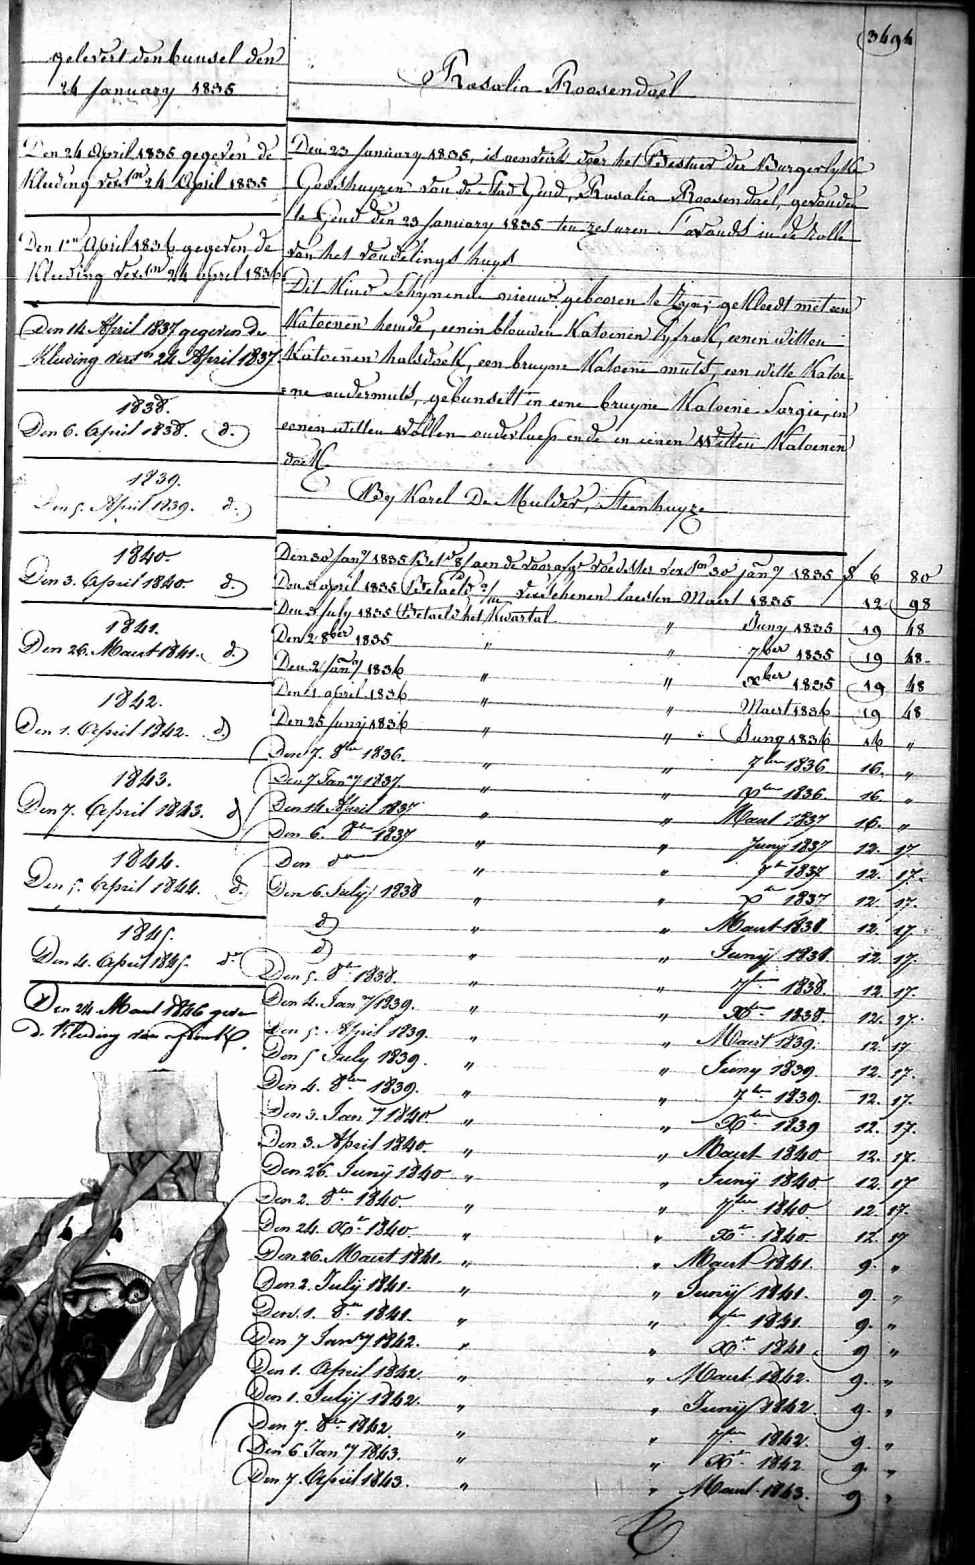 3494
gelevert den bunsel den
24 January 1835
Den 24 April 1835 gegeven de
Kleeding vers.en 24 April 1835
Den 1en April 1836 gegeven de
Kleeding vers.en 24 april 1836
Den 14 April 1837 gegeven de
Kleeding vers.n 24 April 1837
1838.
Den 6. April 1838. d.o
1839.
Den 5. April 1839. d.o
1840.
Den 3. April 1840. d.o
1841.
Den 26. Maert 1841. d.o
1842.
Den 1. April 1842. d.o
1843.
Den 7. April 1843. d.o
1844.
Den 5. April 1844. d.o
1845.
Den 4. April 1845. d.o
Den 24 Maert 1846
d. Kleeding van
Rosalia Roosendael
Den 23 January 1835, is aenveird door het Bestuer der Burgerlyke
Godshuyzen van de Stad Gend, Rosalia Roosendael, gevonden
te Gend den 23 January 1835 ten zes uren s'avonds in de rolle
van het vondelings huys
Dit Kind Schynende nieuw gebooren te zyn; gekleedt met een
Katoenen hemde, een in blouwen Katoenen lyfrok, eenen witten
Katoenen halsdoek, een bruyne Katoene muts, een witte Katoe-
=ne ondermuts, gebunselt in eene bruyne Katoene Sargie, in
eenen witten wollen onderluep ende in eenen Witten Katoenen
doek
By Karel De Mulder, Steenhuyze
Den 30 Jany 1835 Bet. aen de voorzge voedster vers.en 30 jany 1835 6 80
Den april 1835 Betaeld verschenen laesten Maert 1835 12 98
Den 3 July 1835 Betaeld het Kwartal " Juny 1835 19 48
Den 2 8ber 1835 " " 7ber 1835 19 48
Den 2 Jany 1836 " " xber 1835 19 48
Den 1 april 1836 " " Maert 1836 19 48
Den 25 Juny 1836 " " Juny 1836 16 "
Den 7. 8ber 1836. " " 7ber 1836 16. "
Den 7 Jany 1837. " " xber 1836 16. "
Den 14 April 1837 " " Maert 1837 16. "
Den 6. 8ber 1837 " " Juny 1837 12. 17.
Den " " 7ber 1837 12. 17.
Den 6. July 1838 " " xber 1837 12. 17.
d.o " " Maert 1838 12. 17.
d.o " " Juny 1838 12. 17.
Den 5. 8ber 1838. " " 7ber 1838. 12. 17.
Den 4. Jany 1839. " " Xber 1838 12. 17.
Den 5. April 1839. " " Maert 1839. 12. 17
Den 5 July 1839. " " Juny 1839 12. 17.
Den 4. 8ber 1839. " " 7ber 1839. 12. 17.
Den 3. Jany 1840. " " Xber 1839 12. 17.
Den 3. April 1840. " " Maert 1840 12. 17.
Den 26. Juny 1840 " " Juny 1840 12. 17
Den 2. 8ber 1840. " " 7ber 1840 12. 17.
Den 24. Xber 1840. " " Xber 1840 12. 17
Den 26. Maert 1841. " " Maert 1841. 9. "
Den 2. July 1841. " " Juny 1841. 9. "
Den 1. 8ber 1841. " " 7ber 1841 9. "
Den 7 Jany 1842. " " Xber 1841. 9 "
Den 1. April 1842. " " Maert 1842. 9. "
Den 1. July 1842. " " Juny 1842. 9. "
Den 7. 8ber 1842. " " 7ber 1842. 9. "
Den 6 Jany 1843. " " Xber 1842 9. "
Den 7. April 1843. " " Maert 1843. 9 "